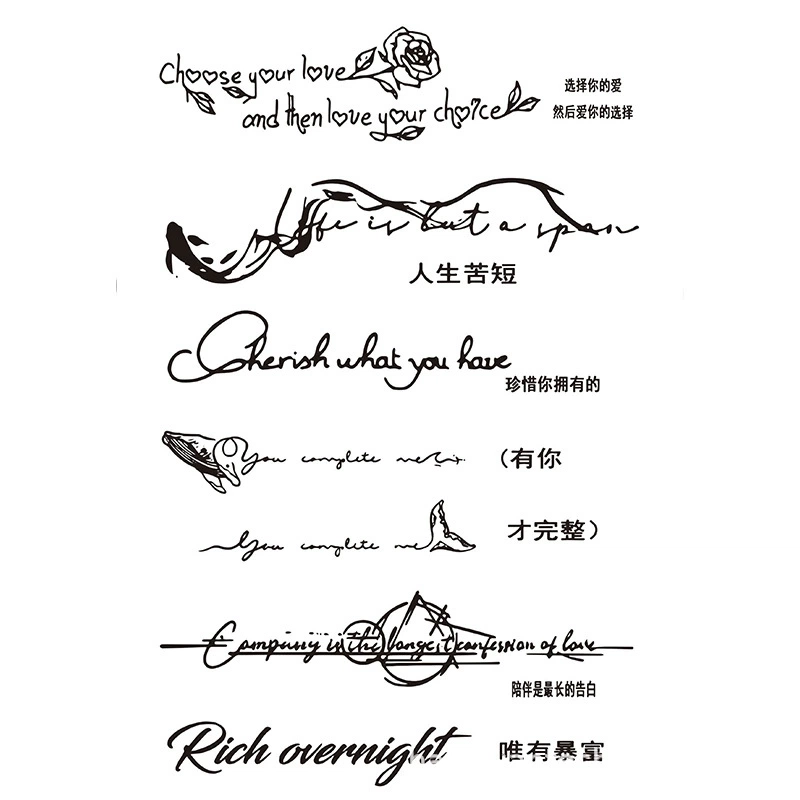 Choose your love
and then love your choice
选择你的爱
然后爱你的选择
Life is but a span
人生苦短
Cherish what you have
珍惜你拥有的
You complete me
（有你
You complete me
才完整）
Company is the longest confession of love
陪伴是最长的告白
Rich overnight
唯有暴富